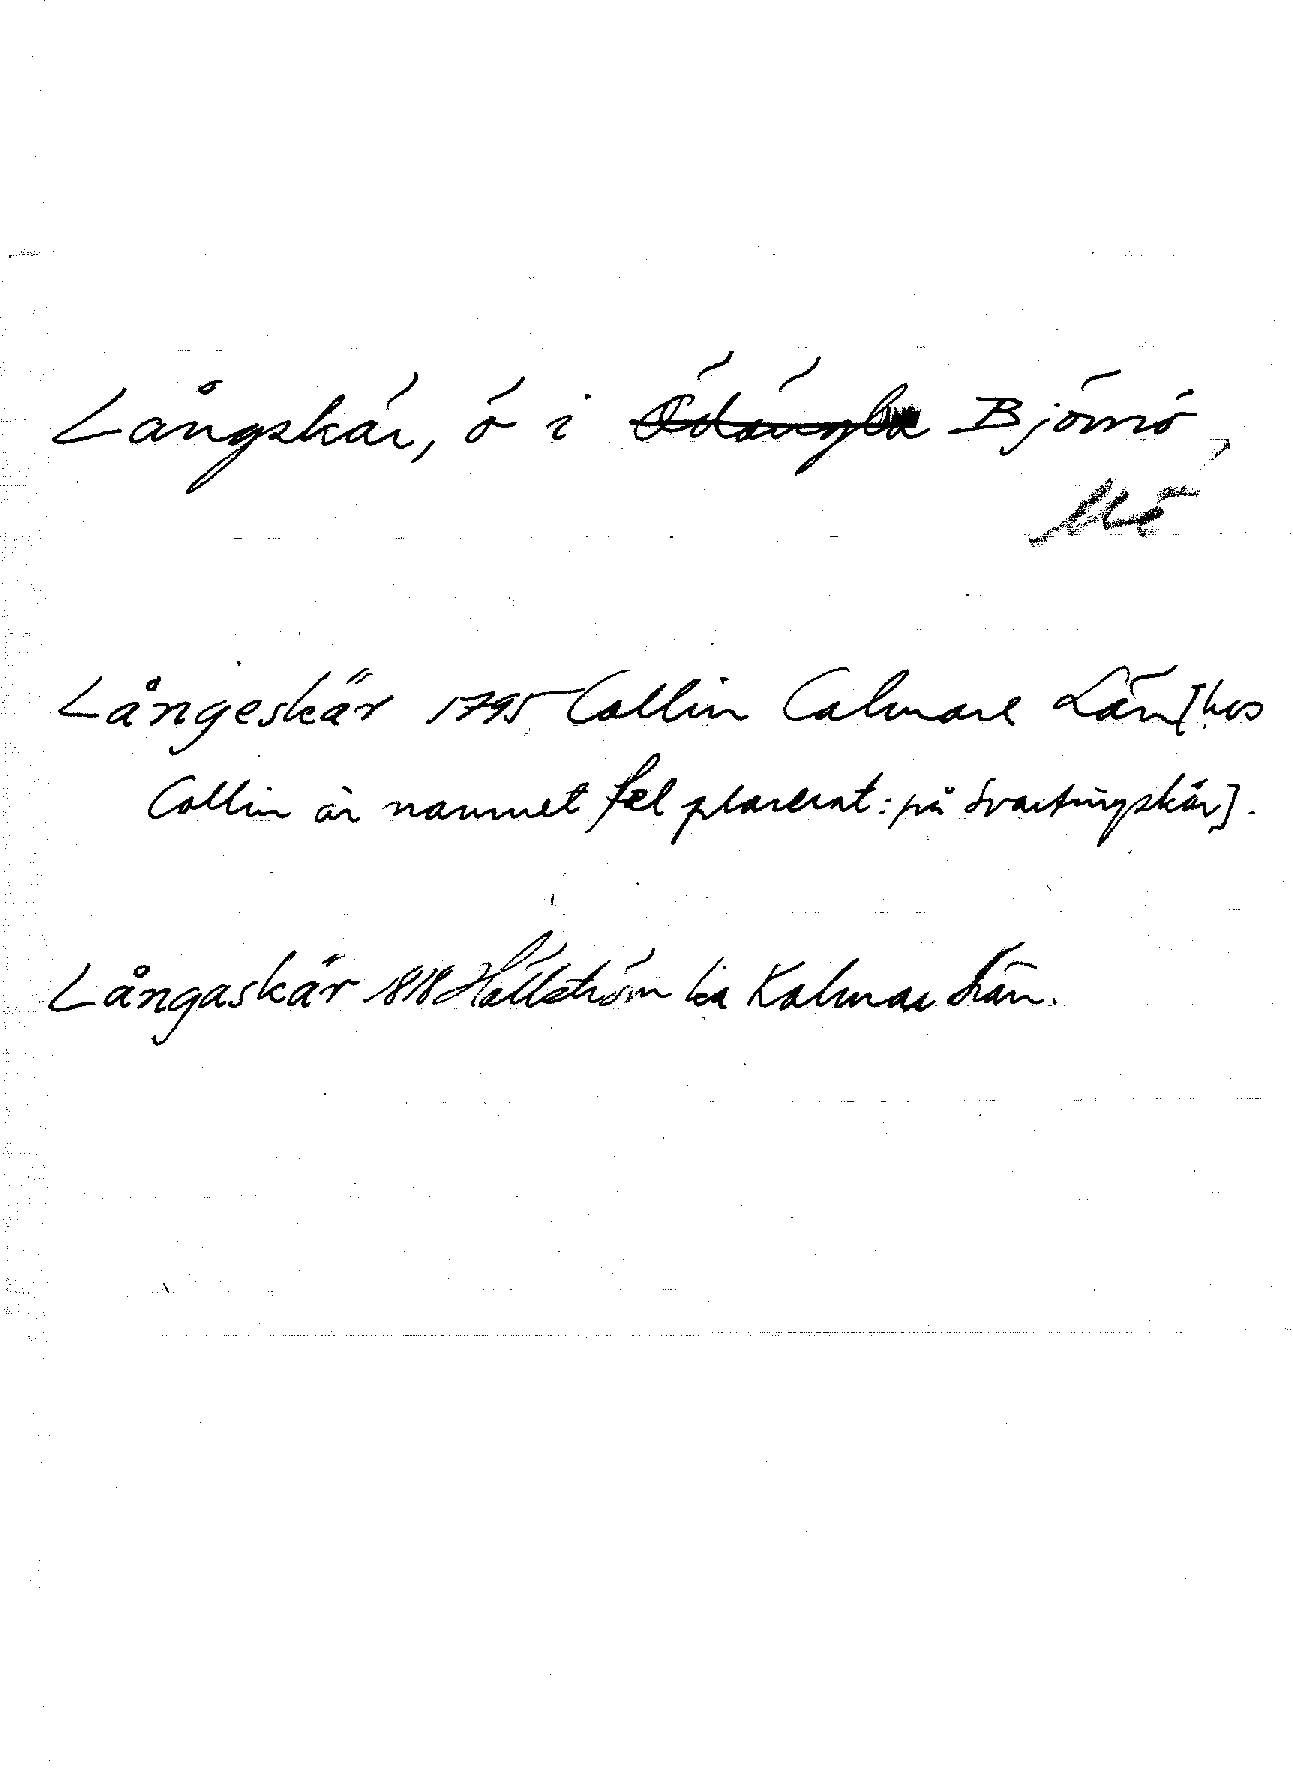 Långskär, ö i Ödängla Björnö,
Mö
Långeskär 1795 Collin Calmare Län [hos
Collin är namnet fel placerat: på Svartingskär].
Långaskär 1818 Hällström ka Kalmar Län.